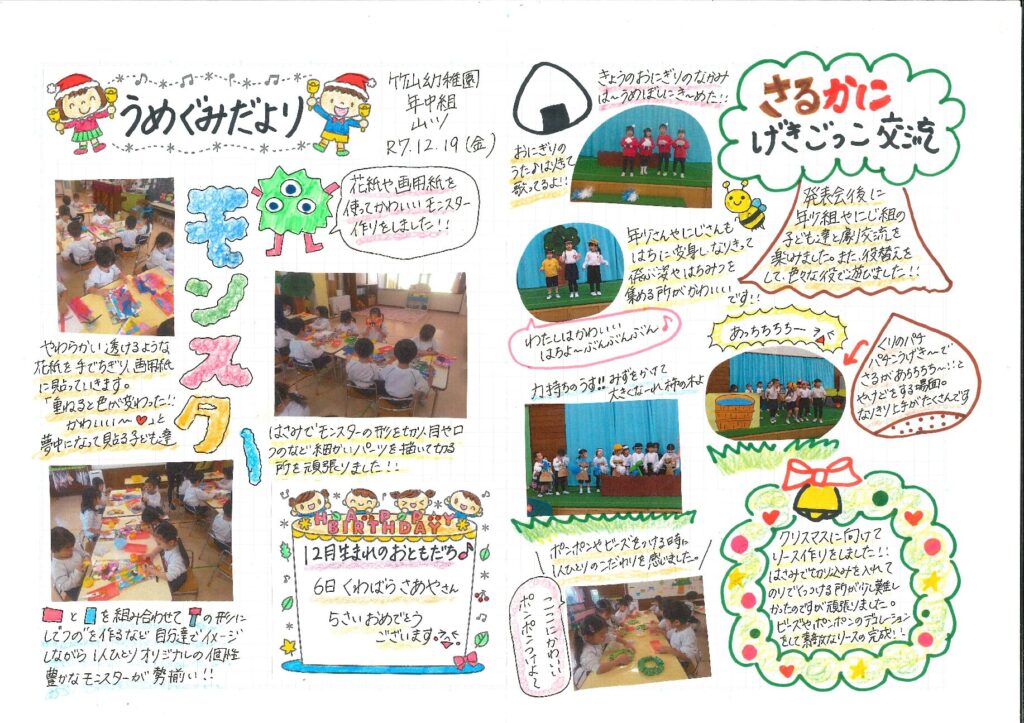 うめぐみだより
竹山幼稚園
年中組
R7.12.19(金)
モンスター
花紙や画用紙を
使ってかわいいモンスター
作りをしました!!
やわらかい透けるような
花紙を手でちぎり、画用紙
に貼っていきます。
「重ねると色が変わった!!
かわいい〜♥」と
夢中になって貼る子ども達
はさみでモンスターの形を切り、目や口
つのなど細かいパーツを描いて切る
所を頑張りました!!
とを組み合わせての形に
して"つの"を作るなど自分達でイメージ
しながら1人ひとりオリジナルの個性
豊かなモンスターが勢揃い!!
HAPPY
BIRTHDAY
12月生まれのおともだち♪
6日 くわばらさあやさん
5さいおめでとう
ございます。
さるかに
げきごっこ交流
きょうのおにぎりのなかみ
は〜うめぼしにき〜めた!!
おにぎりの
うたよはりきって
歌ってるよ!!
発表会後に
年少組やにじ組の
子ども達と劇交流を
楽しみました。また、役替えを
して、色々な役で遊びました!!
年少さんやにじさんも
はちに変身しなりきって
飛ぶ姿やはちみつを
集める所がかわいい
です!!
わたしはかわいい
はちよ〜ぶんぶんぶん♪
あっちちちちー
くりのパチ
パチこうげき〜で
さるがあちちちち〜!!と
やけどをする場面。
なりきり上手がたくさんです
力持ちのうす!!みずをかけて
大きくな〜れ 柿の木よ
ポンポンやビーズをつける時に
1人ひとりのこだわりを感じました。
ここにかわいい
ポンポンつけよ〜
クリスマスに向けて
リース作りをしました!!
はさみで切り込みを入れて
のりでくっつける所が少し難し
かったのですが頑張りました。
ビーズやポンポンのデコレーション
をして素敵なリースの完成!!